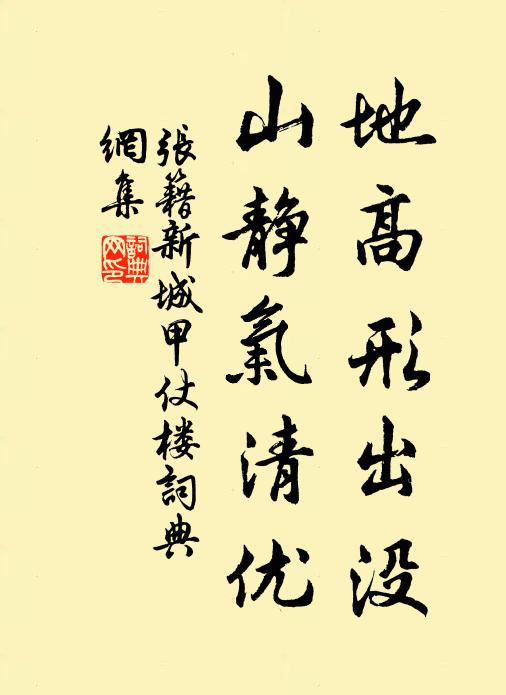 地高形出没
山静氣清优
張籍新城甲仗楼詞典
網集
詞典
网印